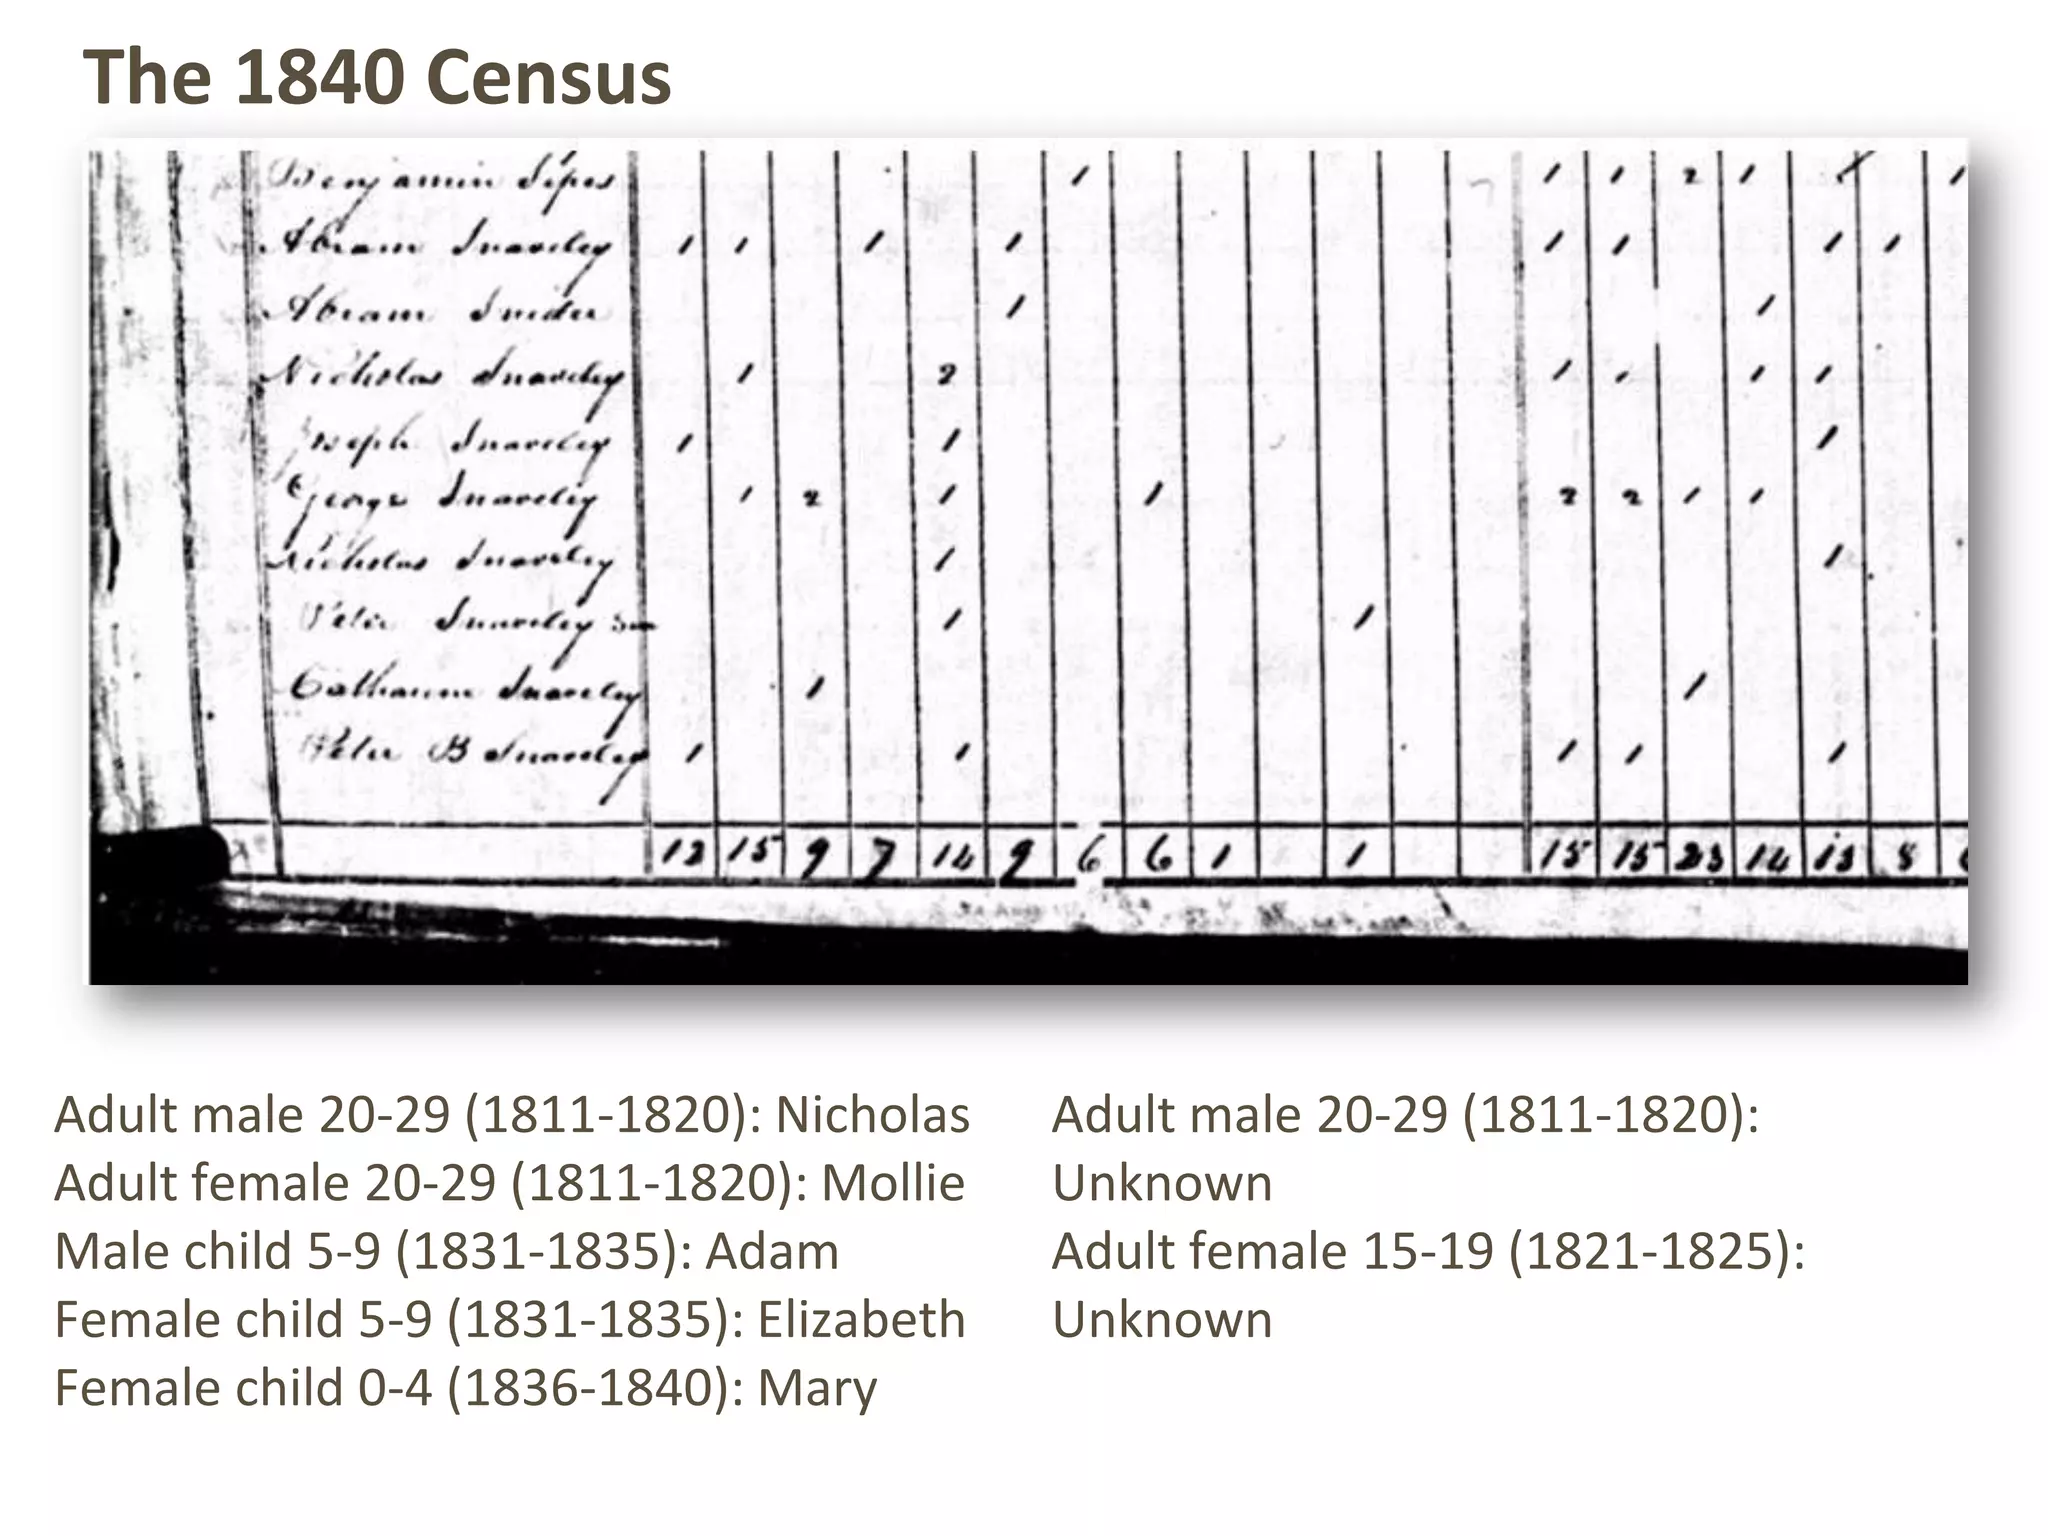 The 1840 Census
Benjamin Sipes 1 1 1 2 1 1 1
Abram Snaveley 1 1 1 1 1 1 1 1
Abram Snider 1 1
Nicholas Snaveley 1 2 1 1 1 1
Joseph Snaveley 1 1 1
George Snaveley 1 2 1 1 2 2 1 1
Nicholas Snaveley 1 1
Peter Snaveley 1 1
Catharine Snaveley 1 1
Peter B Snaveley 1 1 1 1 1
15 9 7 14 9 6 6 1 1 15 15 23 14 8
Adult male 20-29 (1811-1820): Nicholas
Adult female 20-29 (1811-1820): Mollie
Male child 5-9 (1831-1835): Adam
Female child 5-9 (1831-1835): Elizabeth
Female child 0-4 (1836-1840): Mary
Adult male 20-29 (1811-1820):
Unknown
Adult female 15-19 (1821-1825):
Unknown